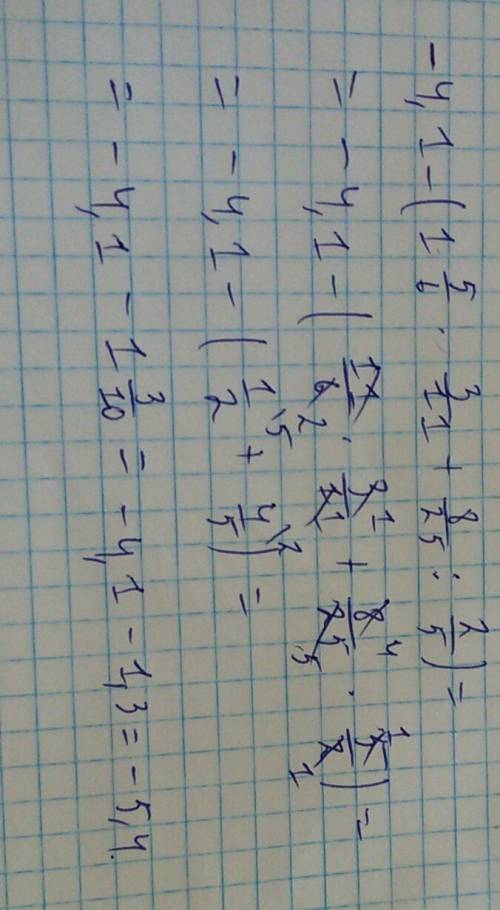 -4,1-(1 5/6 · 3/11 + 8/25 : 2/5)=
= -4,1-(11/6 2 · 3/11 1 + 8/25 4 5 · 5/2 1 1)=
= -4,1-(1/2 \5 + 4/5 \2)=
= -4,1 - 1 3/10 = -4,1 - 1,3 = -5,4.